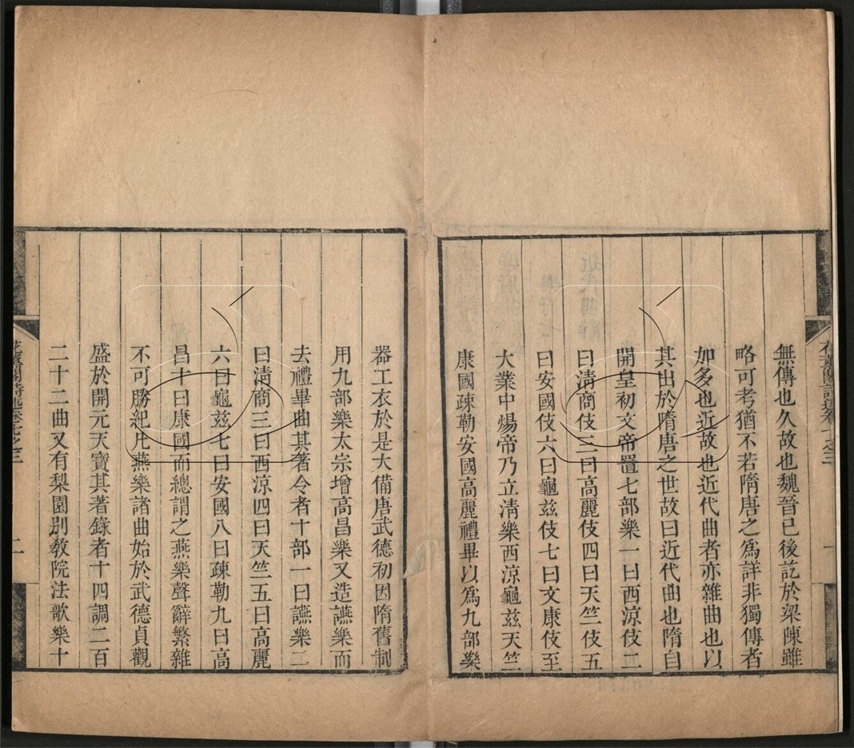 無傳也久故也魏晉已後訖於梁陳雖
略可考猶不若隋唐之爲詳非獨傳者
加多也近故也近代曲者亦雜曲也以
其出於隋唐之世故曰近代曲也隋自
開皇初文帝置七部樂一曰西涼伎二
曰清商伎三曰高麗伎四曰天竺伎五
曰安國伎六曰龜玆伎七曰文康伎至
大業中煬帝乃立清樂西涼龜玆天竺
康國疎勒安國高麗禮畢以爲九部樂
器工衣於是大備唐武德初因隋舊制
用九部樂太宗增高昌樂又造讌樂而
去禮畢曲其著令者十部一曰讌樂二
曰清商三曰西涼四曰天竺五曰高麗
六曰龜玆七曰安國八曰疎勒九曰高
昌十曰康國而總謂之燕樂聲辭繁雜
不可勝紀凡燕樂諸曲始於武德貞觀
盛於開元天寶其著錄者十四調二百
二十二曲又有梨園別教院法歌樂十
二